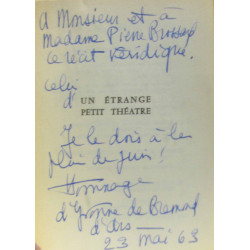 A Monsieur et à
Madame Pierre Brossard
ce récit véridique.
celui
d'
UN ÉTRANGE
PETIT THÉATRE
Je le dois à la
de juin!
Hommage
d'Yvonne de Bremond
d'Ars
23 Mai 63